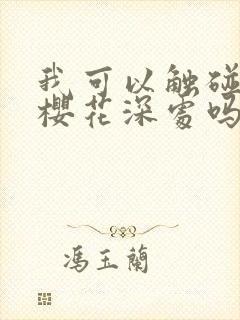 我可以触碰
樱花深处吗
冯玉兰